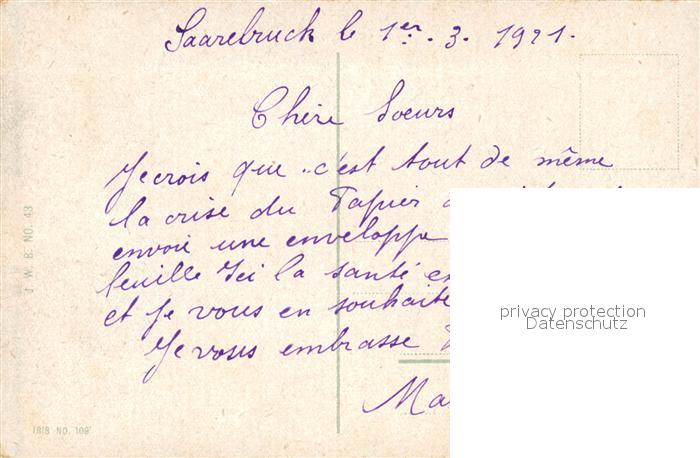 Saarebruck le 1er. 3. 1921.
Chère Soeurs
Je crois que c'est tout de même
la crise du Papier
envoie une enveloppe
feuille Ici la santé
et je vous en souhaite
Je vous embrasse
privacy protection
Datenschutz
J. W. B. NO. 43
IRIS NO. 109